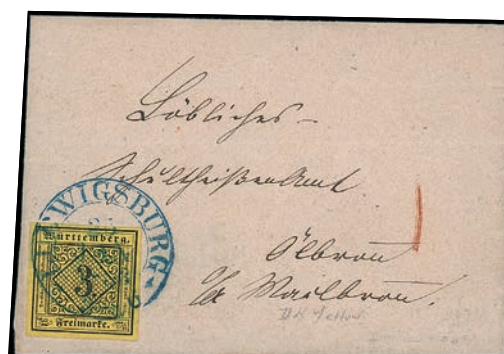 Löbliches
Schultheißenamt
Ölbronn
Maulbronn.
LUDWIGSBURG
Württemberg.
3
Freimarke.
Yellow